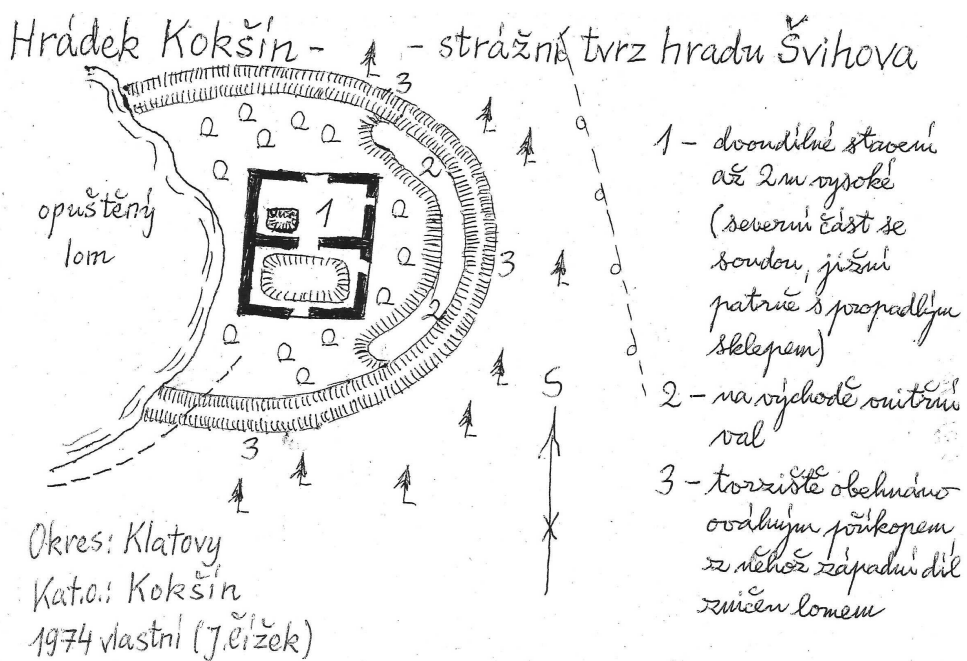 Hrádek Kokšín - - strážní tvrz hradu Švihova
3
2
1
opuštěný
lom
3
2
3
S
1 - dvoudílné stavení
až 2m vysoké
(severní část se
soudou, jižní
patrně s propadlým
sklepem)
2 - na východě vnitřní
val
3 - tvrziště obehnáno
oválným příkopem
z něhož západní díl
zničen lomem
Okres: Klatovy
Kat.o.: Kokšín
1974 vlastní (J.Čížek)